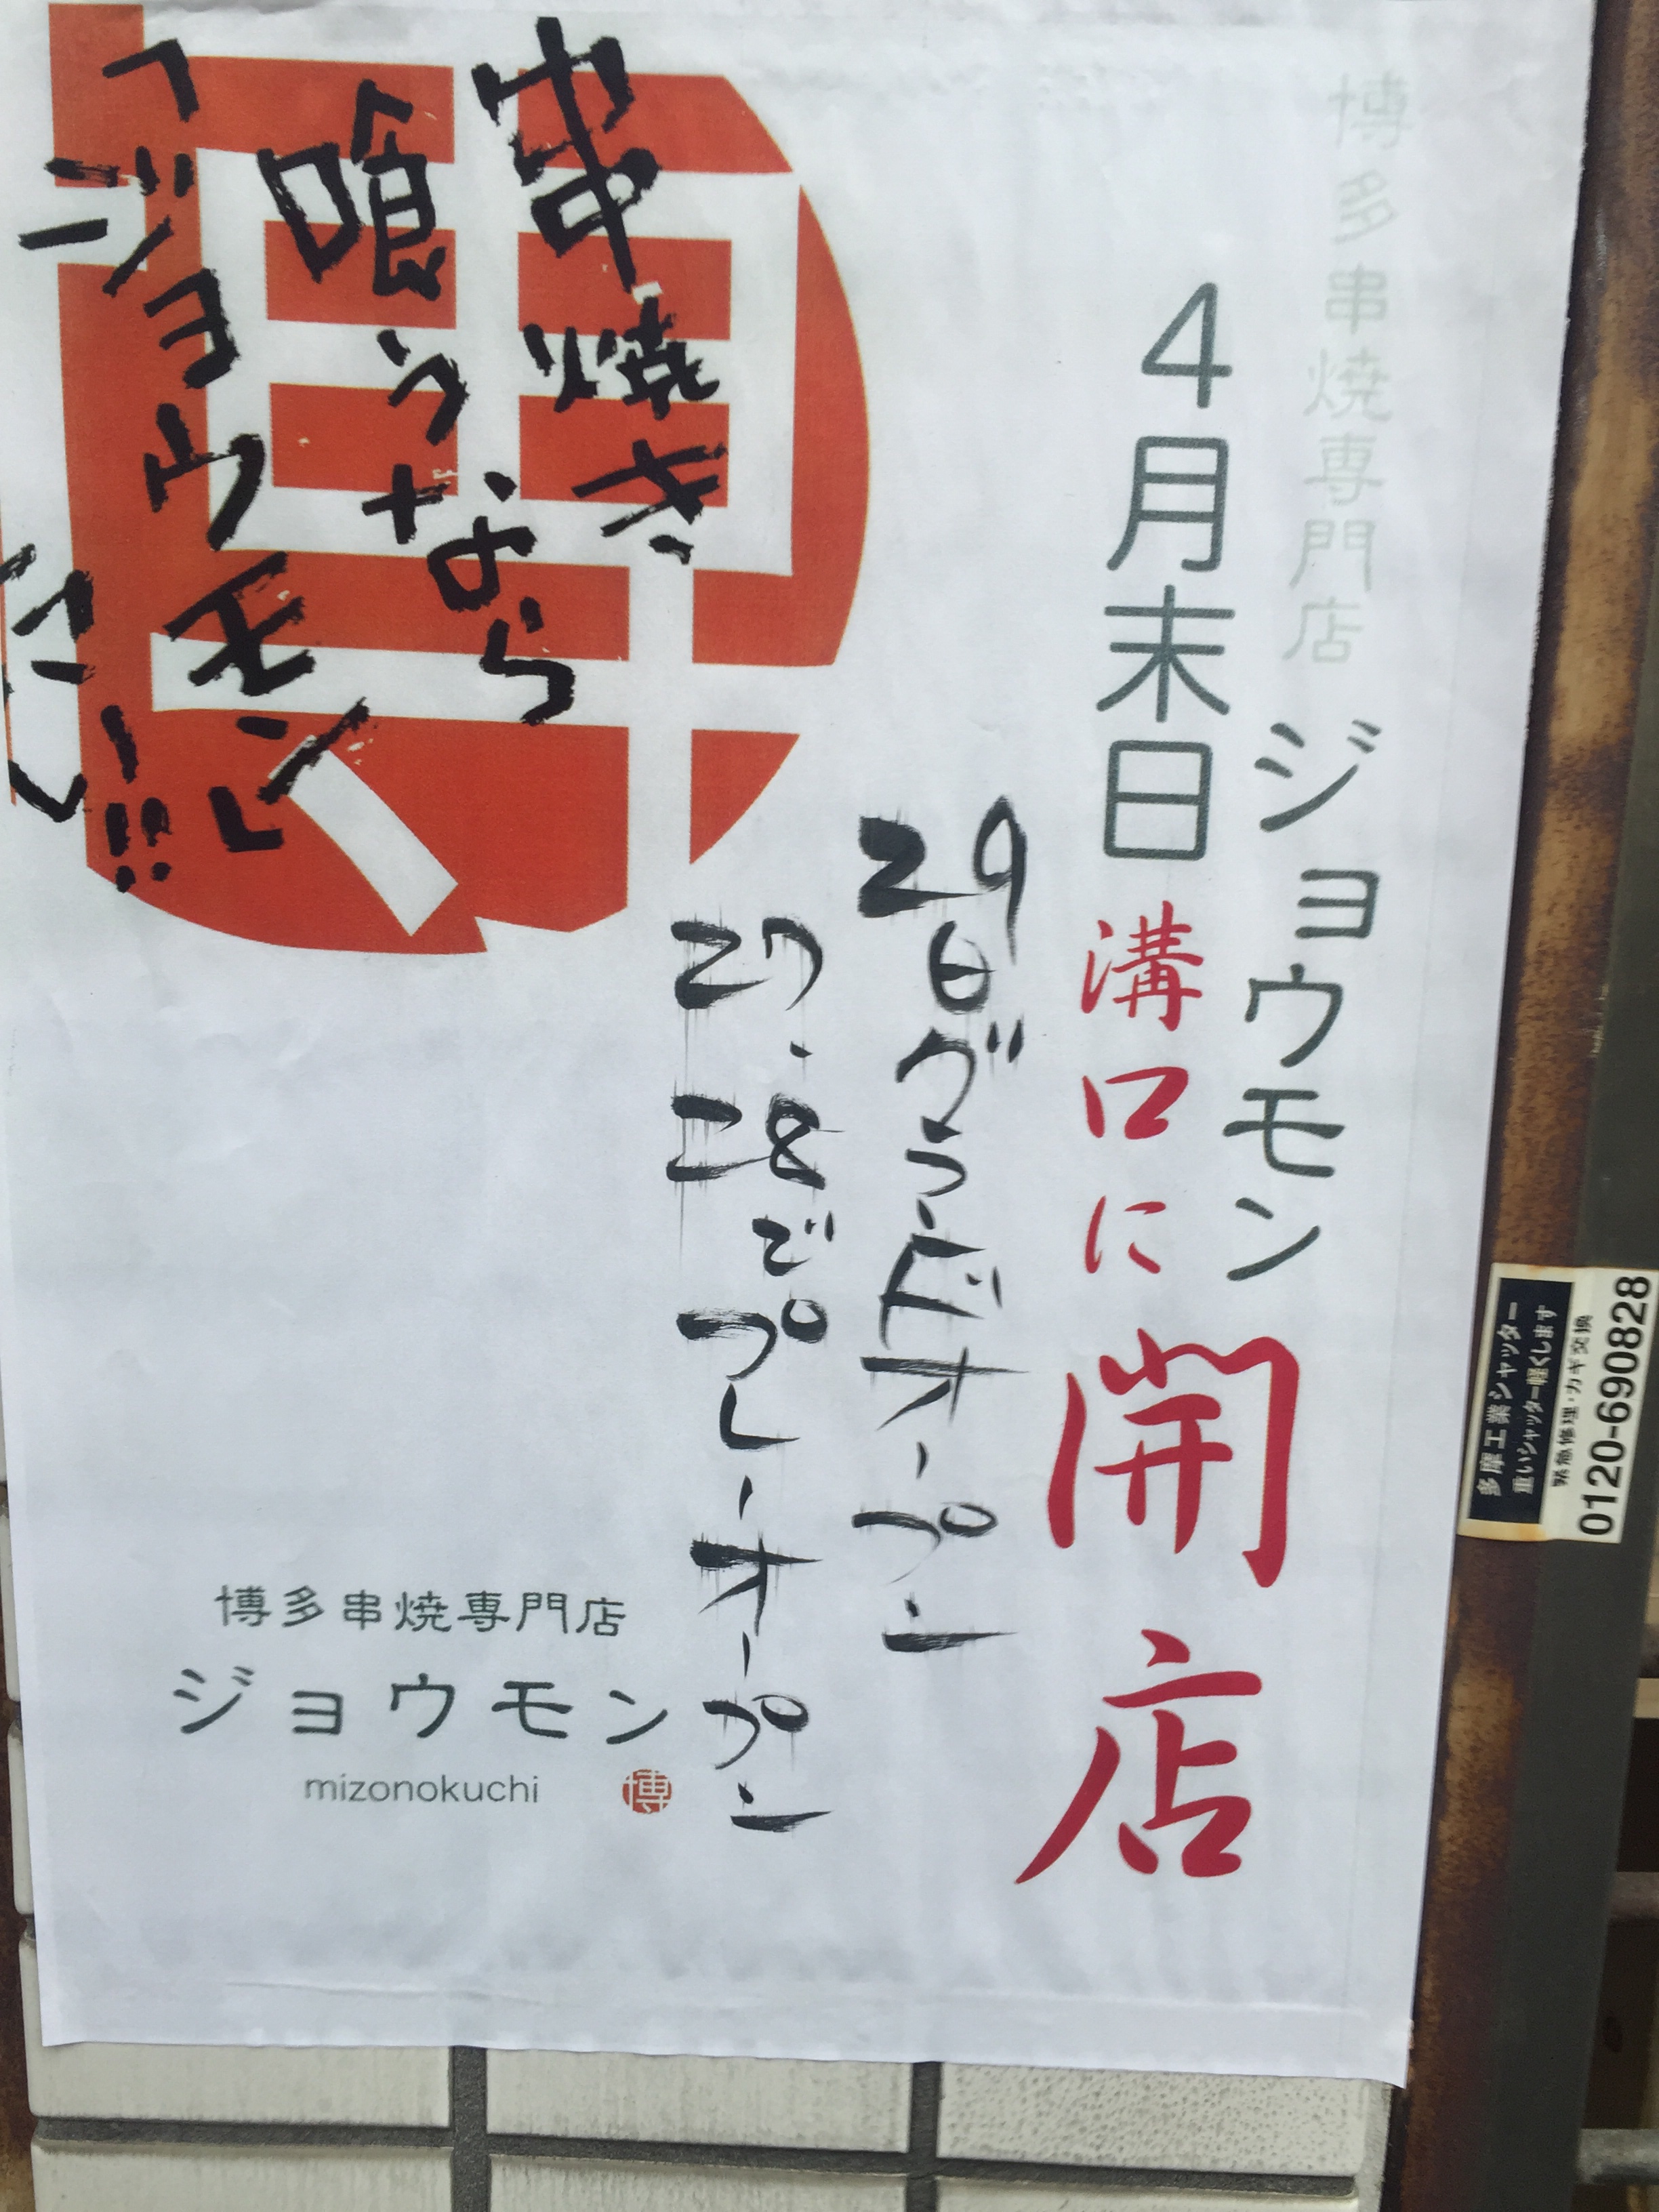 博多串焼専門店
ジョウモン
4月末日
溝口に
開店
29日グランドオープン
27.28でプレーオープン
串焼き
喰うなら
「ジョウモン」
博多串焼専門店
ジョウモン
mizonokuchi
博
多摩工業シャッター
重いシャッター軽くします
緊急修理・カギ交換
0120-690828